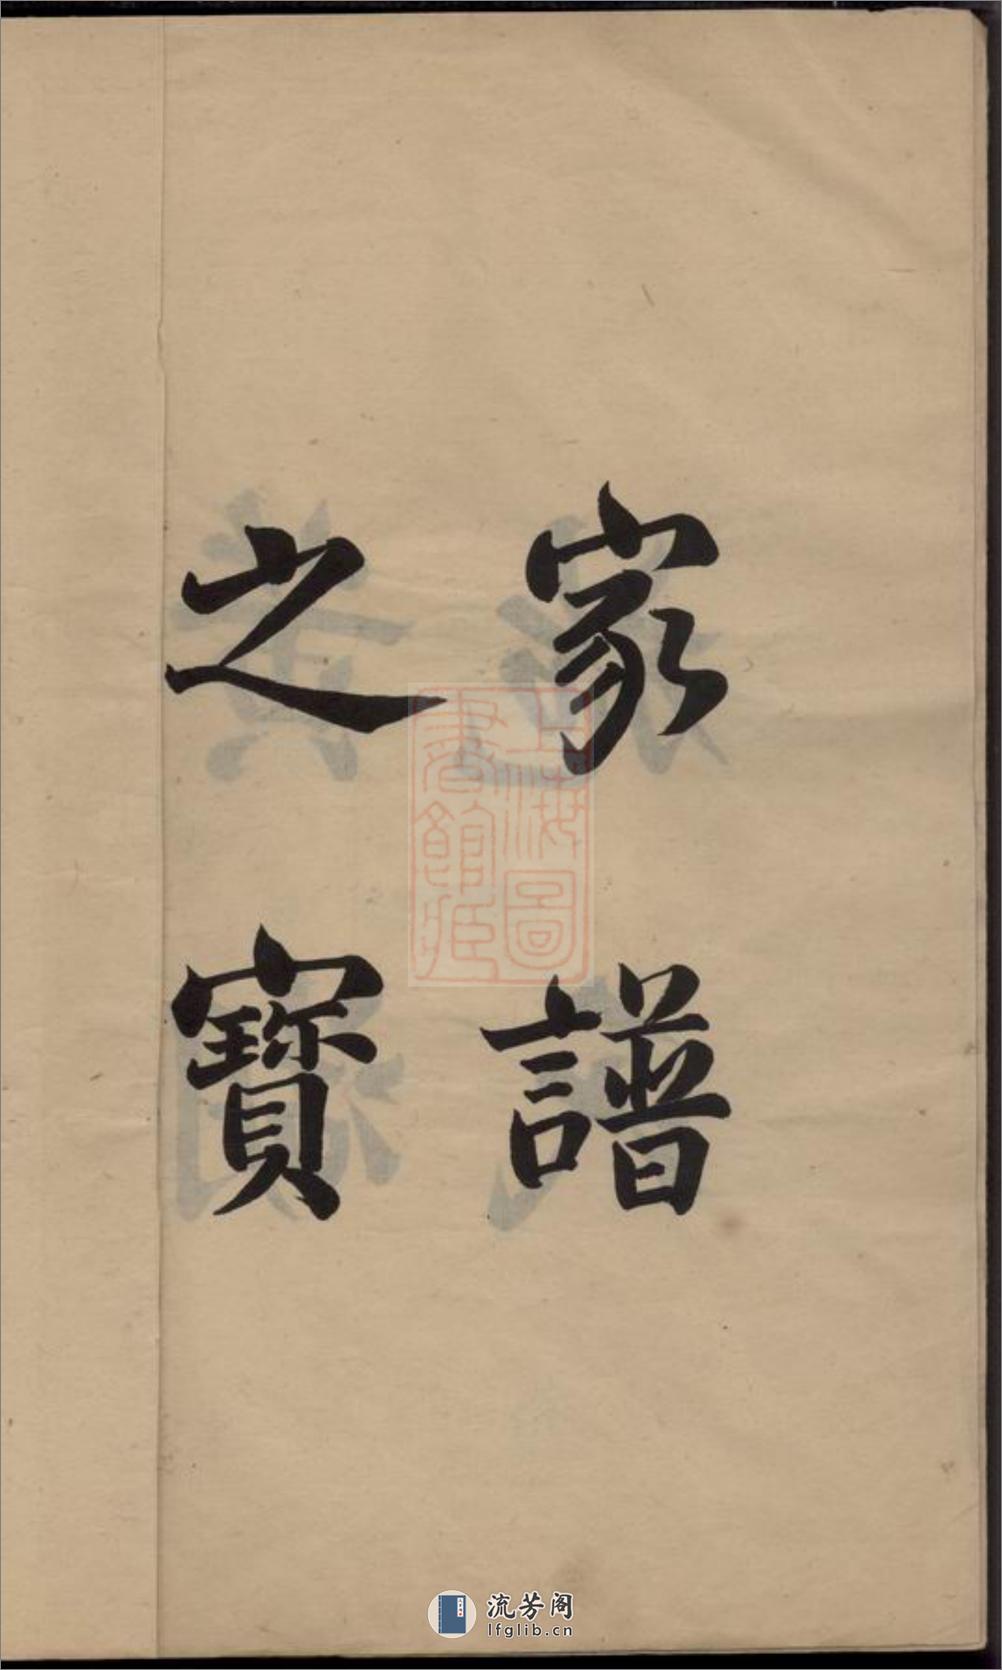 家譜
之寶
上海圖
書館藏
流芳阁
lfglib.cn